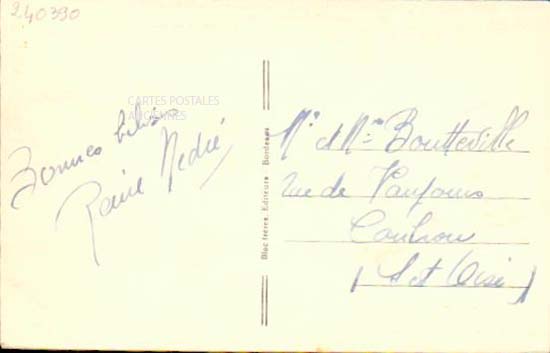 240390
CARTES POSTALES
ANCIENNES
Bonnes
René Médié
Bloc frères, Editeurs - Bordeaux
Mr et Mme Boutteville
rue de
Coubron
(S et Oise)